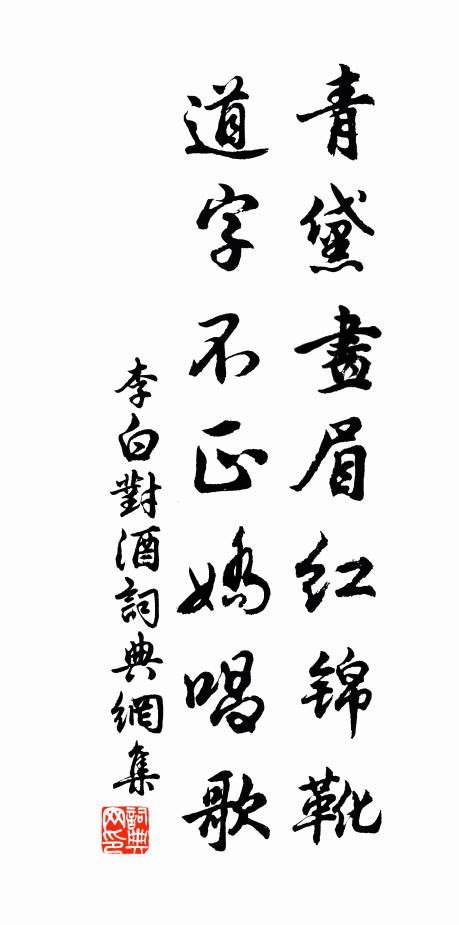 青黛畫眉红锦靴
道字不正嬌唱歌
李白對酒詞典網集
詞典网印